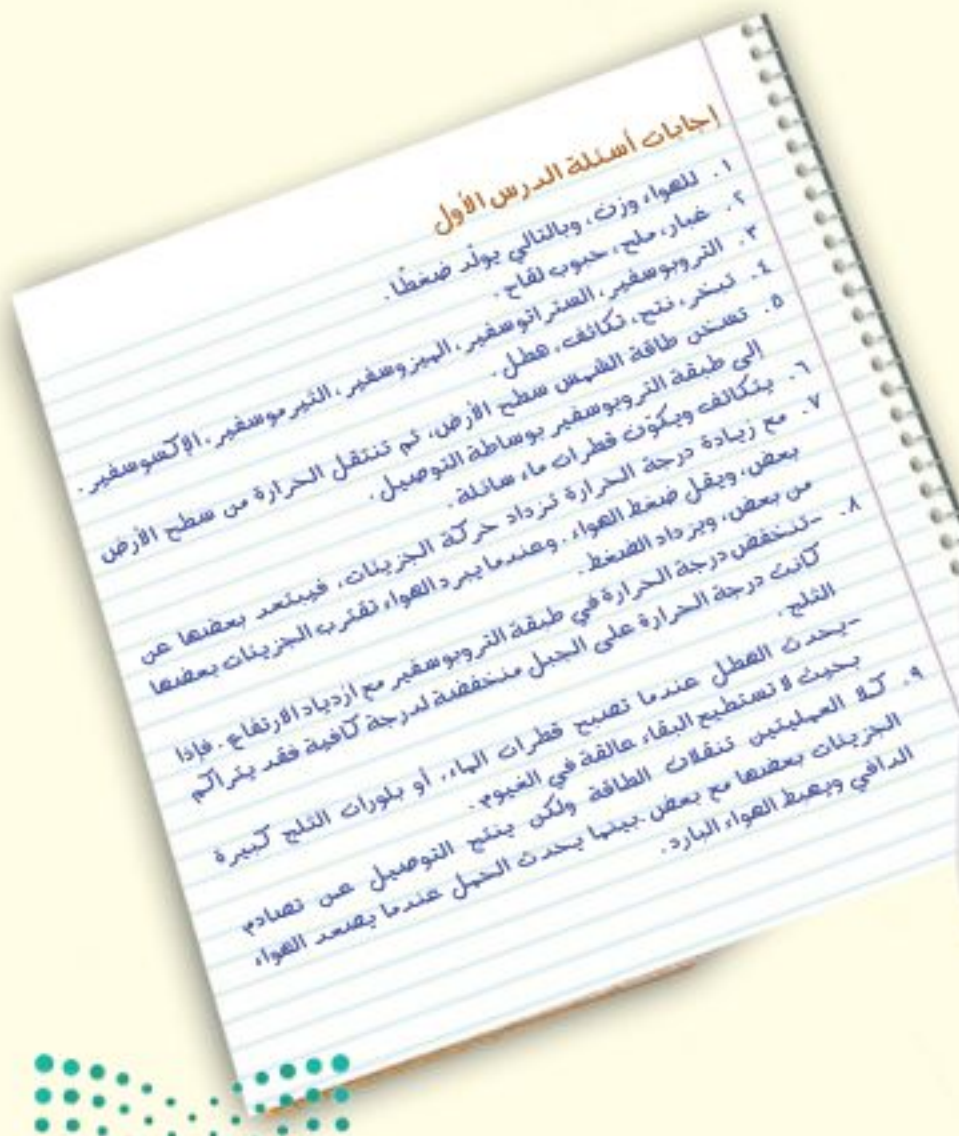 إجابات أسئلة الدرس الأول
١. للهواء وزن، وبالتالي يولّد ضغطًا.
٢. غبار، ملح، حبوب لقاح.
٣. التروبوسفير، الستراتوسفير، الميزوسفير، الثيرموسفير، الإكسوسفير.
٤. تبخر، نتح، تكاثف، هطل.
٥. تسخن طاقة الشمس سطح الأرض، ثم تنتقل الحرارة من سطح الأرض
إلى طبقة التروبوسفير بوساطة التوصيل.
٦. يتكاثف ويكون قطرات ماء سائلة.
٧. مع زيادة درجة الحرارة تزداد حركة الجزيئات، فيبتعد بعضها عن
بعض، ويقل ضغط الهواء. وعندما يبرد الهواء تقترب الجزيئات بعضها
من بعض، ويزداد الضغط.
٨. -تنخفض درجة الحرارة في طبقة التروبوسفير مع ازدياد الارتفاع. فإذا
كانت درجة الحرارة على الجبل منخفضة لدرجة كافية فقد يتراكم
الثلج.
-يحدث الهطل عندما تصبح قطرات الماء، أو بلورات الثلج كبيرة
بحيث لا تستطيع البقاء عالقة في الغيوم.
٩. كلا العمليتين تنقلان الطاقة ولكن ينتج التوصيل عن تصادم
الجزيئات بعضها مع بعض. بينما يحدث الحمل عندما يصعد الهواء
الدافي ويهبط الهواء البارد.